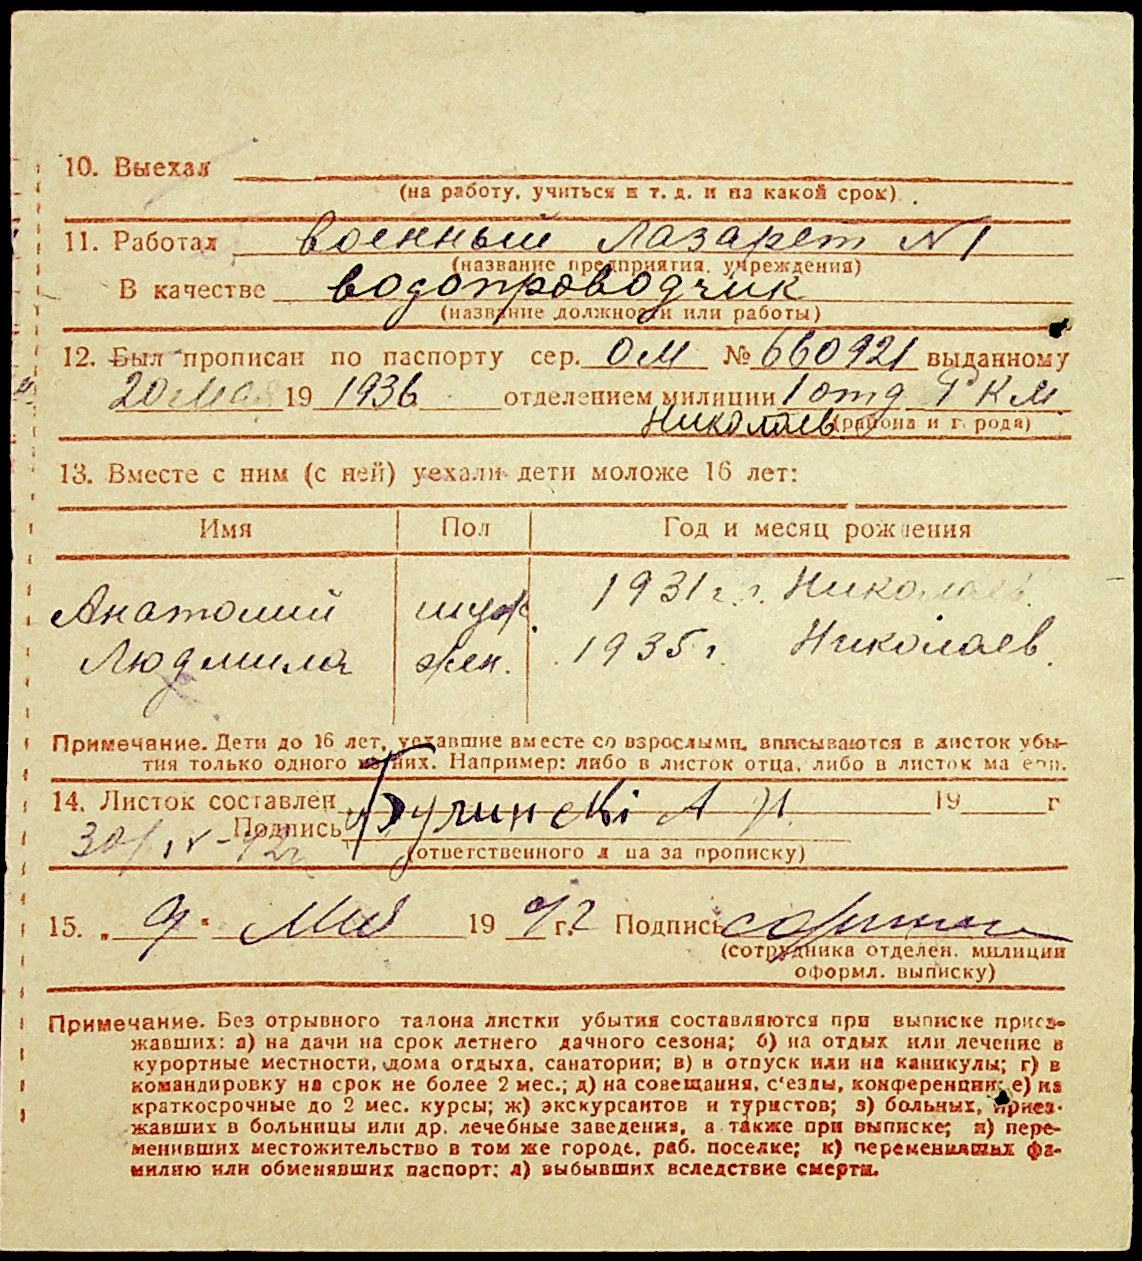 10. Выехал
(на работу, учиться и т. д. и на какой срок)
11. Работал военный лазарет №1
(название предприятия, учреждения)
В качестве водопроводчик
(название должности или работы)
12. Был прописан по паспорту сер. ОМ № 660921 выданному
20 мая 19 1936 отделением милиции 1 отд Р К М
Николаев (района и города)
13. Вместе с ним (с ней) уехали дети моложе 16 лет:
Имя Пол Год и месяц рождения
Анатолий муж. 1931 г. г. Николаев.
Людмила жен. 1935 г. Николаев.
Примечание. Дети до 16 лет, уехавшие вместе со взрослыми, вписываются в листок убы-
тия только одного из них. Например: либо в листок отца, либо в листок матери.
14. Листок составлен 19 г
30/IV-42г Подпись
(ответственного лица за прописку)
15. „9" Мая 19 42 г. Подпись
(сотрудника отделен. милиции
оформл. выписку)
Примечание. Без отрывного талона листки убытия составляются при выписке приез-
жавших: а) на дачи на срок летнего дачного сезона; б) на отдых или лечение в
курортные местности, дома отдыха, санатории; в) в отпуск или на каникулы; г) в
командировку на срок не более 2 мес.; д) на совещания, с'езды, конференции; е) на
краткосрочные до 2 мес. курсы; ж) экскурсантов и туристов; з) больных, приез-
жавших в больницы или др. лечебные заведения, а также при выписке; и) пере-
менивших местожительство в том же городе, раб. поселке; к) переменивших фа-
милию или обменявших паспорт; л) выбывших вследствие смерти.